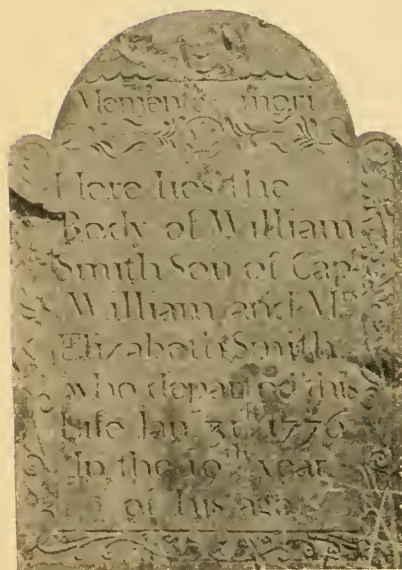 Memento mori
Here lies the
Body of William
Smith Son of Capt.
William and Mrs.
Elizabeth Smith
who departed this
Life Jany. 31th 1776
In the 10th year
of his age